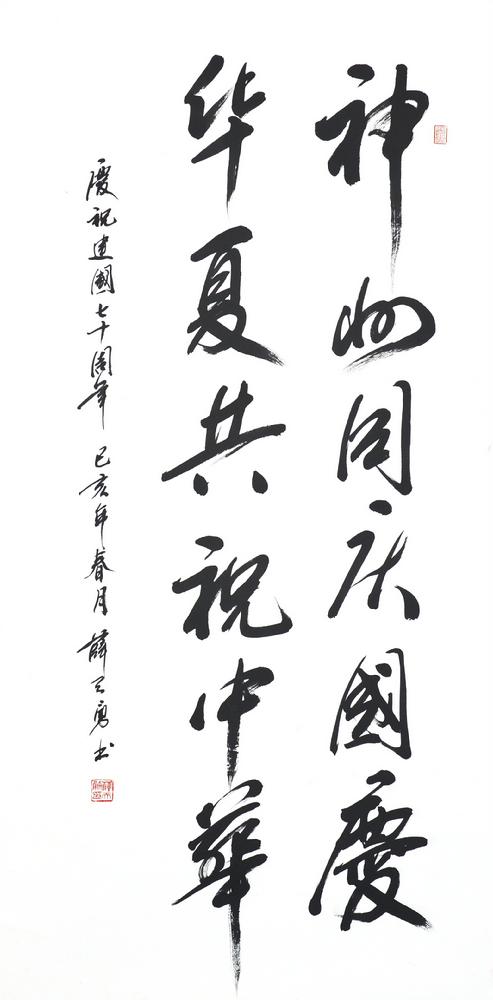 神州同庆國慶
华夏共祝中華
慶祝建國七十周年 己亥年春月 薛天勇书